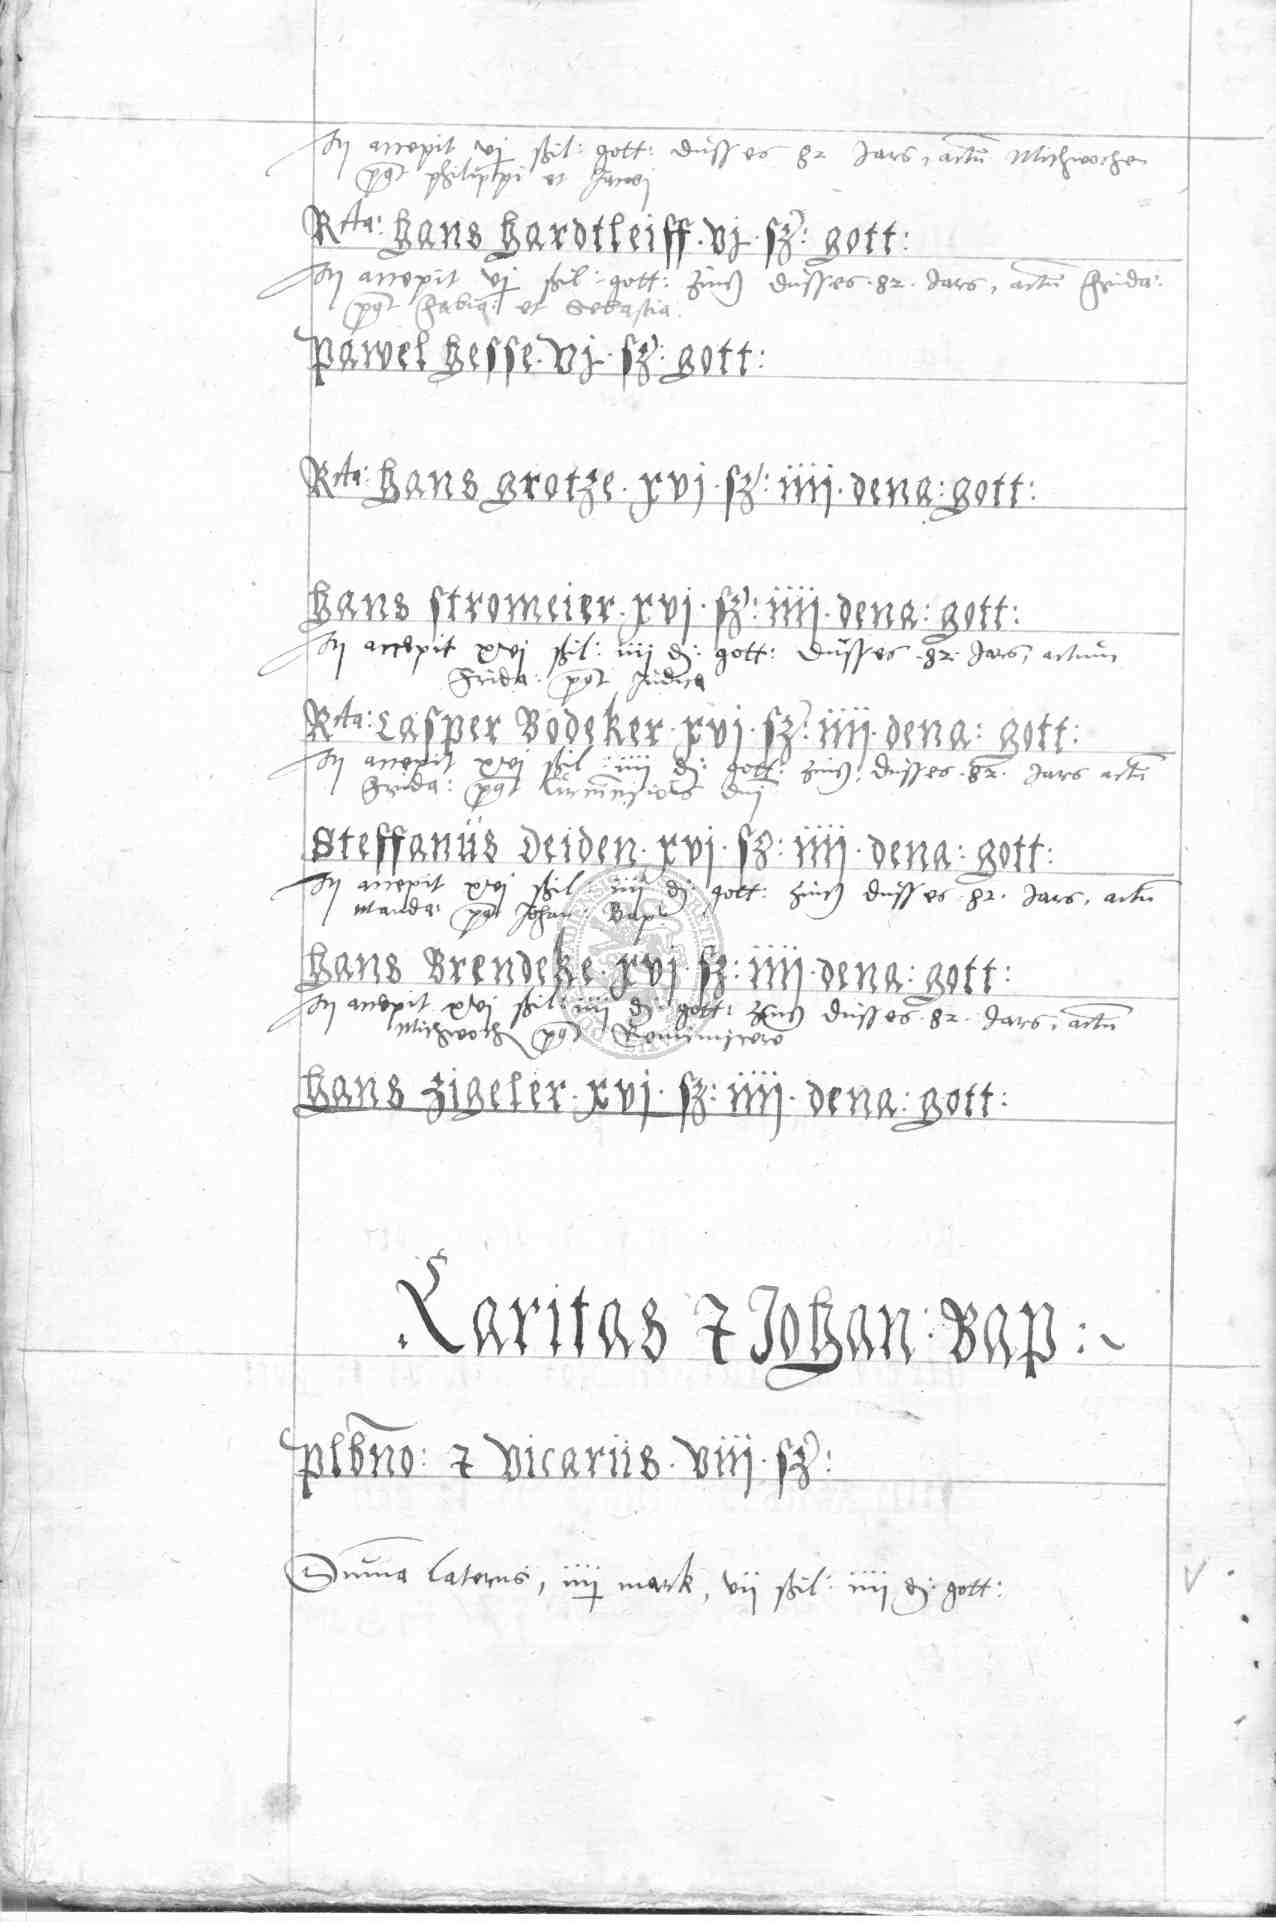 Hy accepit vj schil: gott: dusses 82 Jars, actu Mithwochen
pqt philippi et Jacobi
Rta: Hans Hardtleiff. vj. sz: gott:
Hy accepit vj schil: gott: zinß dusses. 82. Jars, actu Frida:
pqt Fabia: et Sebastia.
Pawel Hesse. vj. sz: gott:
Rta: Hans Grotze. xvj. sz: iiij. dena: gott:
Hans Stromeier. xvj. sz: iiij. dena: gott:
Hy accepit xvj schil: iiij d: gott: dusses .82. Jars, actum
Frida: pqt Judica
Rta: Casper Bodeker. xvj. sz: iiij. dena: gott:
Hy accepit xvj schil: iiij d: gott: zinß, dusses. 82. Jars actu
Frida: pqt
Steffanus Deiden. xvj. sz: iiij. dena: gott:
Hy accepit xvj schil: iiij d: gott: zinß dusses. 82. Jars, actu
Manda: pqt Johan: Bap:
Hans Brendeke. xvj. sz: iiij. dena: gott:
Hy accepit xvj schil: iiij d: gott: zinß dusses. 82. Jars, actu
Mithwoch pqt Reminiscere
Hans Zigeler. xvj. sz: iiij. dena: gott:
Caritas & Johan: Bap:
plbno: & vicariis. viij. sz:
Suma lateris, iiij mark, vij schil: iiij d: gott: